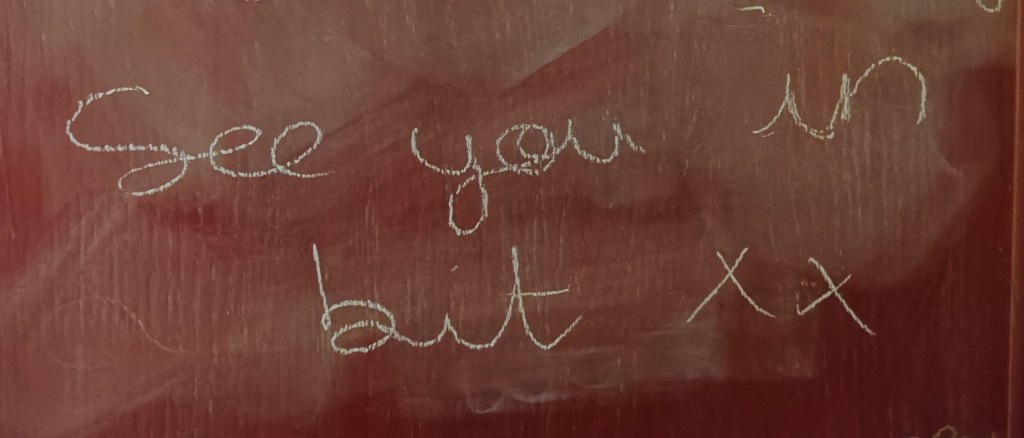 See you in
bit xx